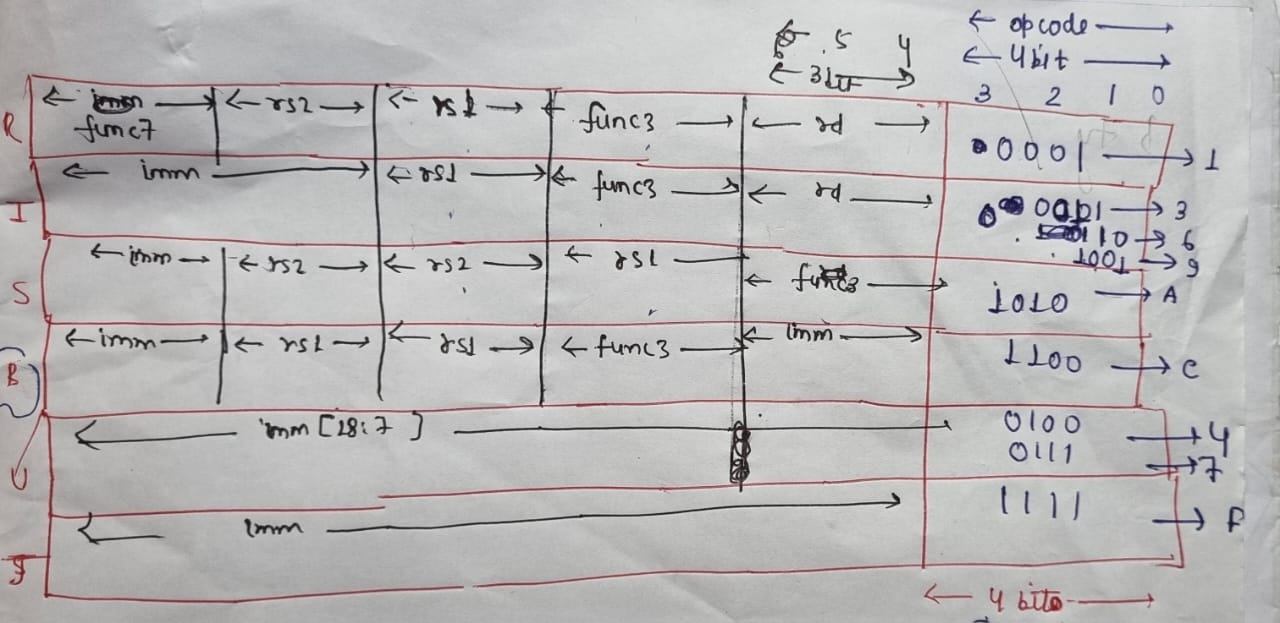 ← opcode →
6 . 5 4
← 4 bit →
← 3bit →
3 2 1 0
R ← func7 → ← rs2 → ← rs1 → ← func3 → ← rd → 0001 → 1
I ← imm → ← rs1 → ← func3 → ← rd → 0 → 3
0110 → 6
1001 → 9
S ← imm → ← rs2 → ← rs2 → ← rs1 → ← func3 → 1010 → A
B ← imm → ← rs1 → ← rs1 → ← func3 → ← imm → 1100 → C
U ← imm [28:7] → 0100 → 4
0111 → 7
J ← imm → 1111 → F
← 4 bits →